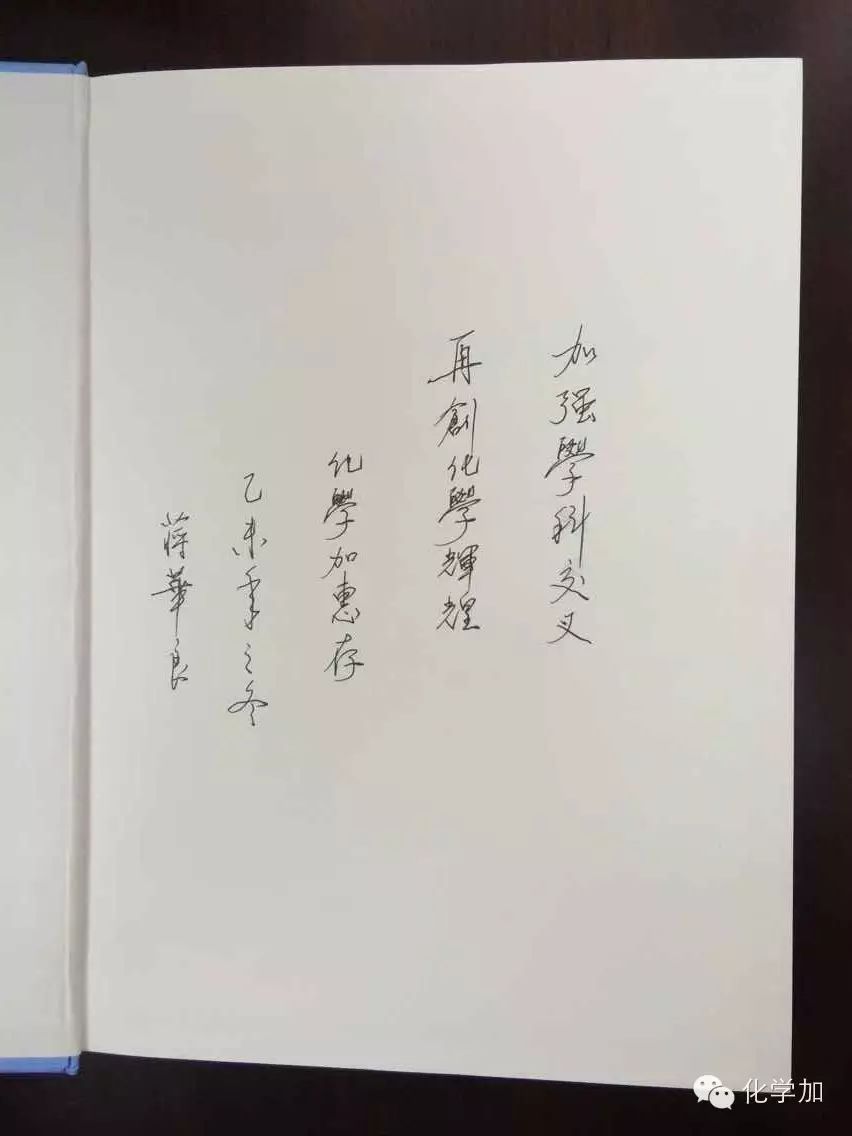 加强學科交叉
再創化學輝煌
化學加惠存
乙未年之冬
蔣華良
化学加